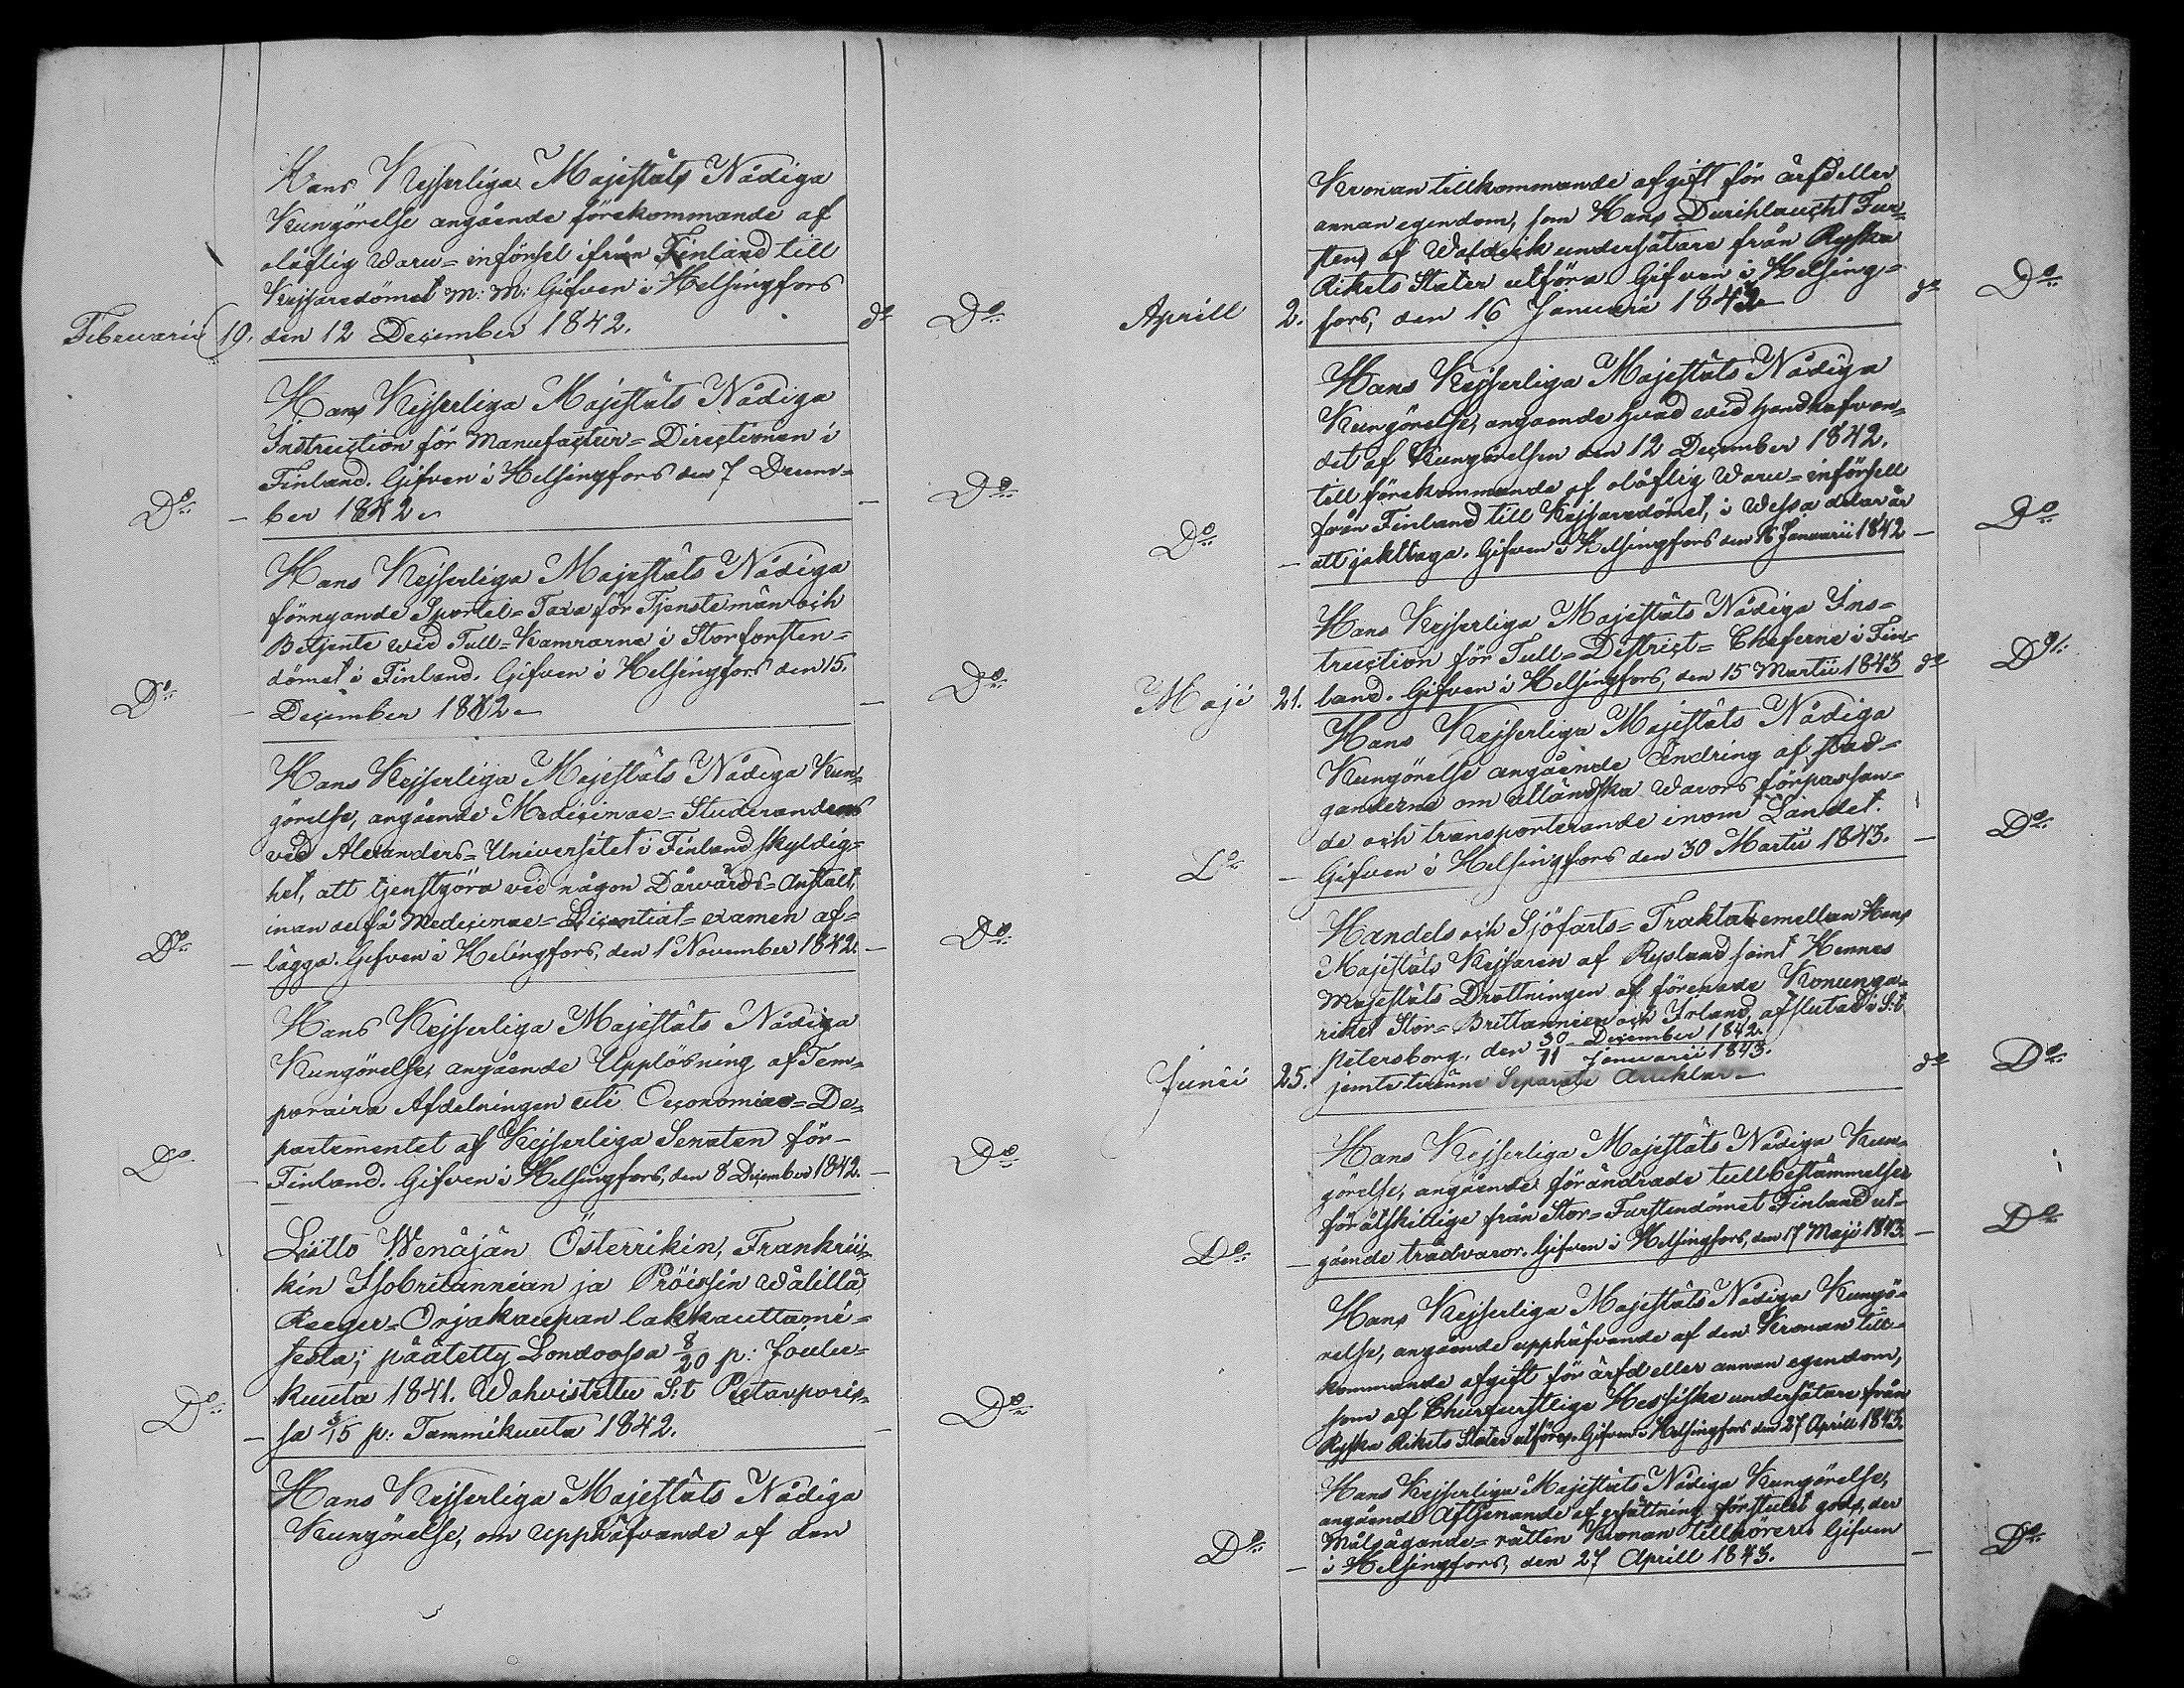 Hans Kejserliga Majestäts Nådiga
Kungörelse angående förekommande af
olåflig Waru=införsel ifrån Finland till
Kejsaredömet m: m: Gifven i Helsingfors
Februarii 19. den 12 December 1842. do Do
Hans Kejserliga Majestäts Nådiga
Instruction för Manufactur=Directionen i
Finland. Gifven i Helsingfors den 7 Decem=
Do — ber 1842. — Do
Hans Kejserliga Majestäts Nådiga
förnyande Sportel=Taxa för Tjenstemän och
Betjente wid Tull=Kamrarne i Storfursten=
dömet i Finland. Gifven i Helsingfors den 15.
Do — December 1842. — Do
Hans Kejserliga Majestäts Nådiga Kun=
görelse, angående Medicinae=Studerandens
ved Alexanders=Universitet i Finland skyldig=
het, att tjenstgöra vid någon Dårvårds=Anstalt,
innan de få Medicinae=Licentiat=examen af=
Do — lägga. Gifven i Helingfors, den 1 November 1842. — Do
Hans Kejserliga Majestäts Nådiga
Kungörelse, angående Upplösning af Tem=
poraira Afdelningen uti Oeconomiae=De=
partementet af Kejserliga Senaten för
Do — Finland. Gifven i Helsingfors, den 8 December 1842. — Do
Liitto Wenäjän Österrikin, Frankrii=
kin Isobritannian ja Pröissin wälillä,
Neeger=Orjakaupan lakkauttami=
sesta; päätetty Londoossa 8/20 p: Joulu=
kuuta 1841. Wahvistettu S:t Pietarporis=
Do — sa 3/15 p: Tammikuuta 1842. — Do
Hans Kejserliga Majestäts Nådiga
Kungörelse, om upphäfvande af den
Kronan tillkommande afgift för ärfd eller
annan egendom, som Hans Durchlaucht Fur=
stens af Waldeck undersåtare från Ryska
Rikets Stater utföra. Gifven i Helsing=
Aprill 2. fors, den 16 Januarii 1843 do Do
Hans Kejserliga Majestäts Nådiga
Kungörelse, angående hvad wid handhafvan=
det af Kungörelsen den 12 December 1842.
till förekommande af olåflig Waru=införsell
från Finland till Kejsaredömet, i wessa delar är
Do — att jakttaga. Gifven i Helsingfors den 16 Januarii 1842 — Do
Hans Kejserliga Majestäts Nådiga Ins=
truction för Tull=District=Cheferne i Fin=
Maji 21. land. Gifven i Helsingfors, den 15 Martii 1843 do Do
Hans Kejserliga Majestäts Nådiga
Kungörelse angående Ändring af stad=
ganderne om utländska Warors förpassan=
de och transporterande inom Landet.
Do — Gifven i Helsingfors den 30 Martii 1843. — Do
Handels och Sjöfarts=Traktat emellan Hans
Majestäts Kejsaren af Rysland samt Hennes
Majestäts Drottningen af förenade Konunga=
riket Stor=Brittannien och Irland, afslutad i S:t
Petersborg, den 30 December 1842. / 11 Januarii 1843.
Junii 25. jemte terenne Separate Articklar — do Do
Hans Kejserliga Majestäts Nådiga Kun=
görelse, angående förändrade tullbestämmelser
för åtskillige från Stor=Furstendömet Finland ut=
Do — gående trädvaror. Gifven i Helsingfors, den 17 Maji 1843. — Do
Hans Kejserliga Majestäts Nådiga Kungö=
relse, angående upphäfvande af den Kronan till=
kommande afgift för ärfd eller annan egendom,
som af Churfurstlige Hessiske undersåtare från
Ryska Rikets Stater utföres. Gifven i Helsingfors den 27 Aprill 1843.
Hans Kejserliga Majestäts Nådiga Kungörelse,
angående Aftjenande af ersättning förstulet gods, der
Målsägande=rätten Kronan tillhörer. Gifven
Do — i Helsingfors, den 27 Aprill 1843. — Do